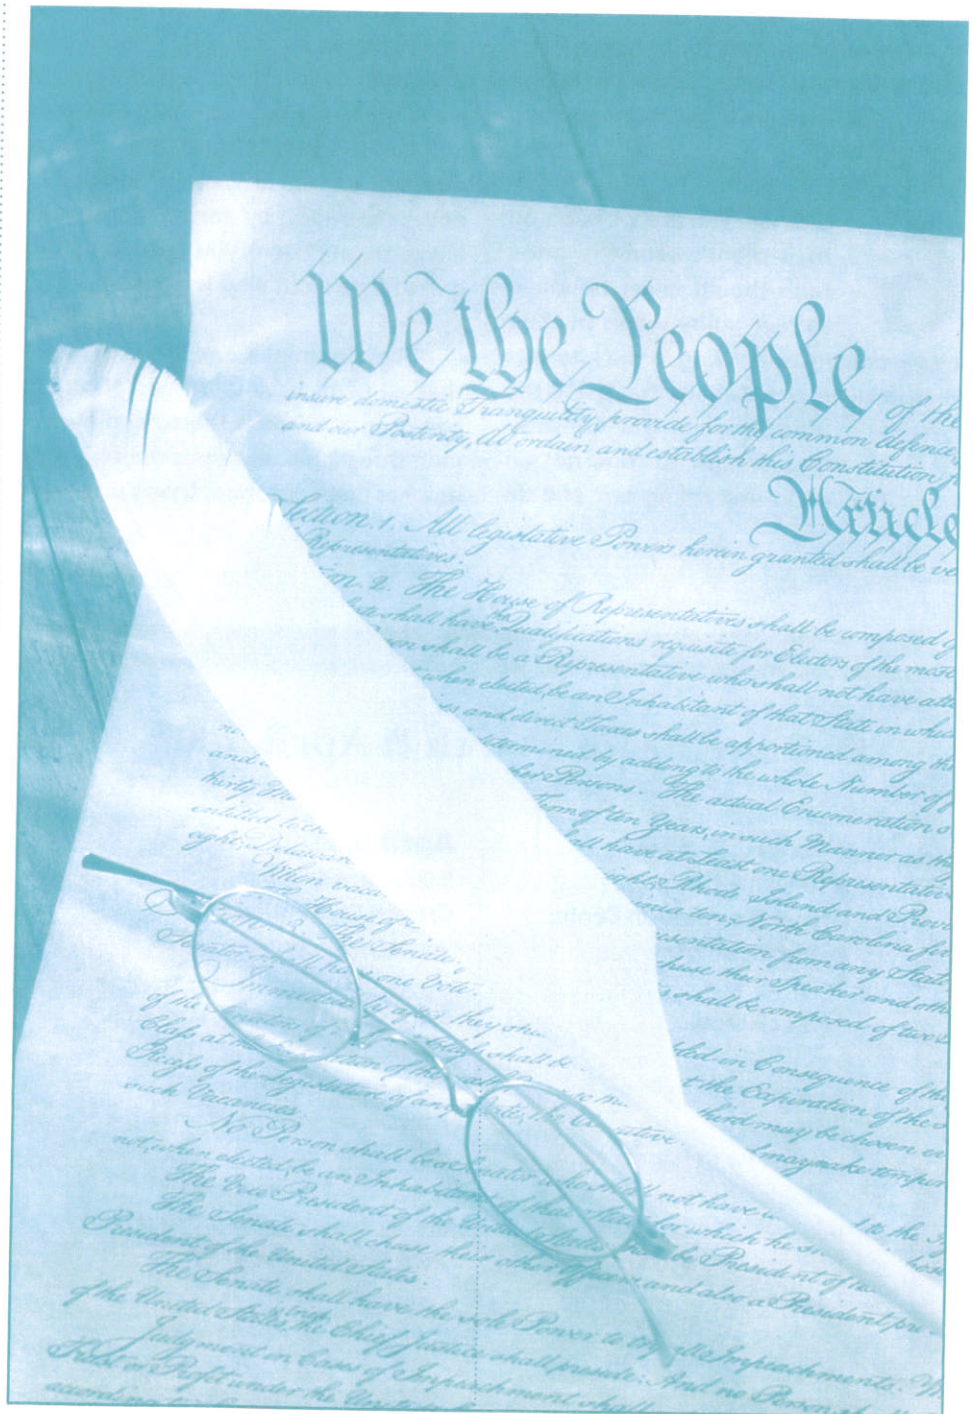 We the People of the
insure domestic Tranquility, provide for the common defence,
and our Posterity, do ordain and establish this Constitution
Article
Section. 1. All legislative Powers herein granted shall be
Representatives.
2. The House of Representatives shall be composed
shall have the Qualifications requisite for Electors of the most
shall be a Representative who shall not have
when elected, be an Inhabitant of that State in
and direct Taxes shall be apportioned among
by adding to the whole Number of
and Persons. The actual Enumeration
thirty of ten Years, in such Manner as
entitled to have at Least one Representative
eight, Rhode Island and
When ten, North Carolina
House of from any State
the Senate chuse their Speaker and
Senator one Vote. shall be composed of two
Immediately after they in Consequence of the
of the shall be at the Expiration of the
Class at third may be chosen
Recess of the Legislature of any make
such Vacancies.
No Person shall be a not have to the
not, when elected, be an Inhabitant of that for which he
The Vice President of the United be President of the
The Senate shall chuse their other Officers, and also a President pro
President of the United States.
The Senate shall have the sole Power to try all Impeachments.
of the United States, the Chief Justice shall preside: And no Person
Judgment in Cases of Impeachment shall
Trust or Profit under the United
according to